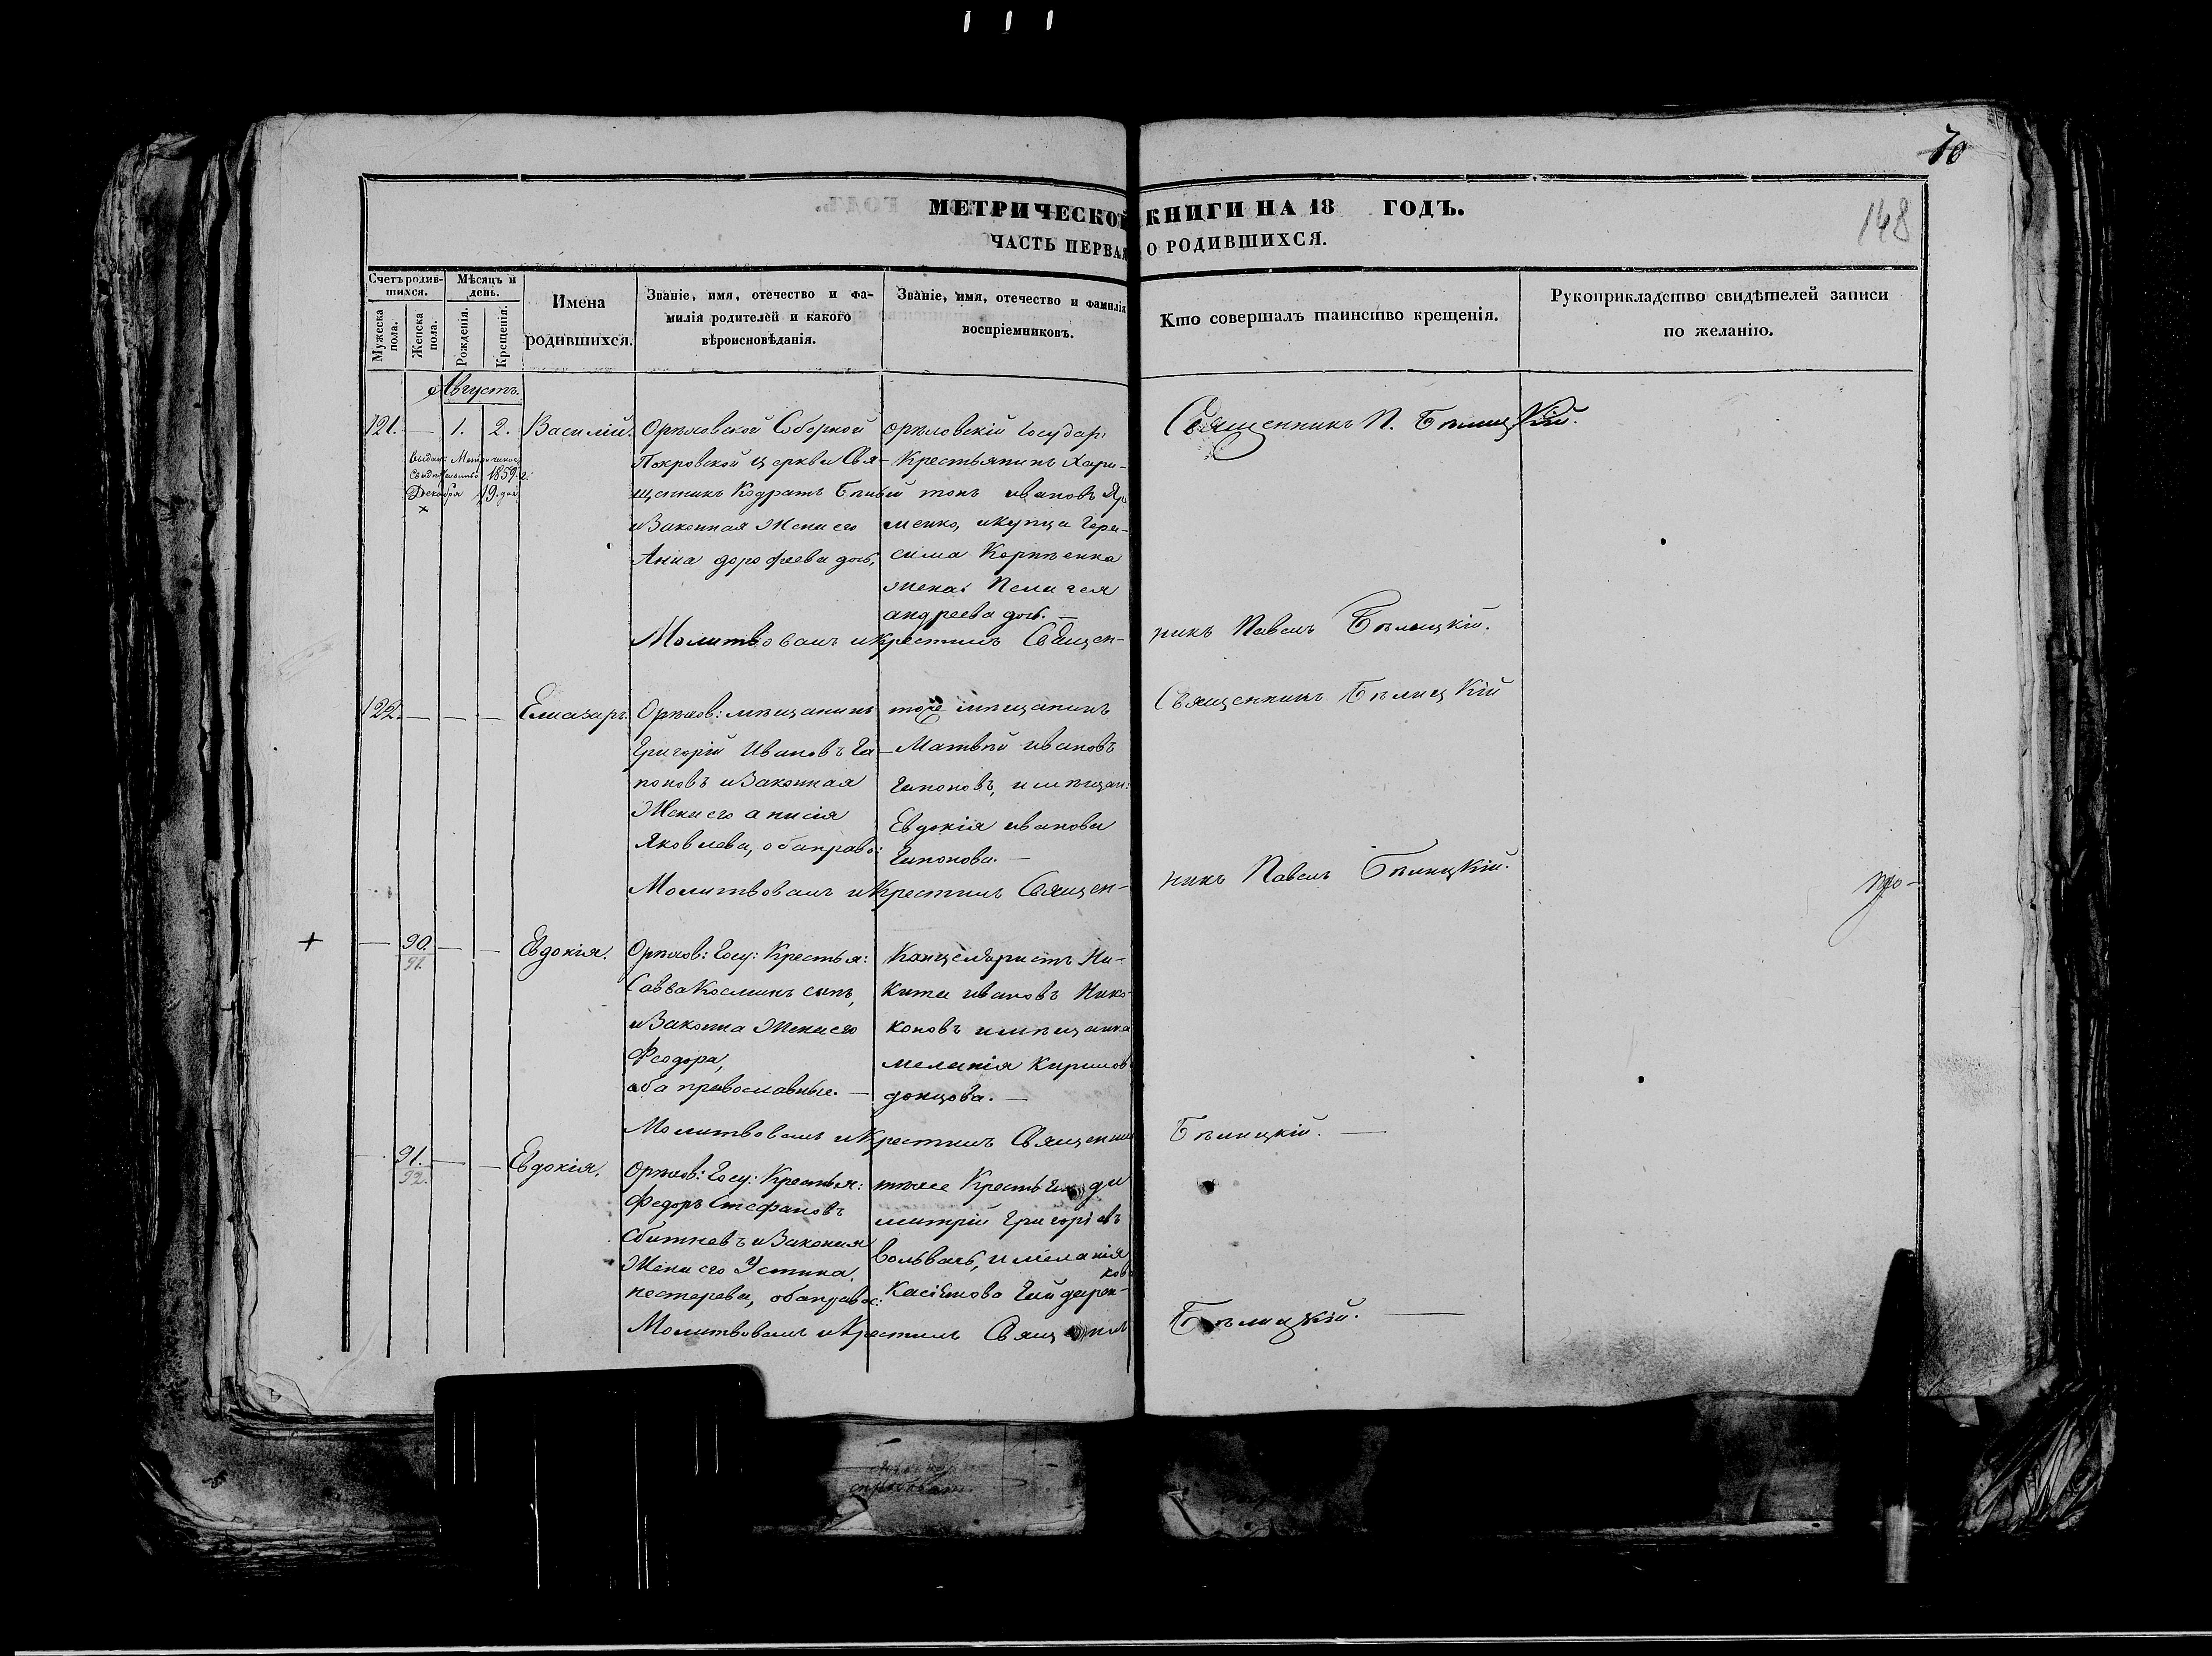 70
148
МЕТРИЧЕСКОЙ КНИГИ НА 18 ГОДЪ.
ЧАСТЬ ПЕРВАЯ О РОДИВШИХСЯ.
Счетъ родившихся.
Мужеска пола.
Женска пола.
Мѣсяцъ и день.
Рожденія.
Крещенія.
Имена родившихся.
Званіе, имя, отечество и фамилія родителей и какого вѣроисповѣданія.
Званіе, имя, отечество и фамилія воспріемниковъ.
Кто совершалъ таинство крещенія.
Рукоприкладство свидѣтелей записи по желанію.
Августъ.
121. — 1. 2. Василій.
Выдан: Метрическое
Свидѣтельство 1859 г:
Декабря 19. дня
Орѣховской Соборной
Покровской церкви Свя-
щенникъ Кодратъ
и Законная Жена его
Анна дорофеева дочь,
орѣховскій Государ:
Крестьянинъ Хари-
тонъ ивановъ Яре
менко, и купца Гера-
сима Корнѣенка
жена: Пелагея
андреева дочь. —
Священникъ П. Бѣлицкій.
Молитвовалъ и Крестилъ Священ- никъ Павелъ Бѣлицкій.
122. — — — Елиазаръ.
Орѣхов: мѣщанинъ
Григорій Ивановъ Га-
поновъ и Законная
Жена его анисія
Яковлева, оба право:
тоже мѣщанинъ
Матвѣй ивановъ
Гапоновъ, и мѣщан:
Евдокія иванова
Гапонова. —
Священникъ Бѣлицкій
Молитвовалъ и Крестилъ Священ- никъ Павелъ Бѣлицкій.
про-
+ — 90. — — Евдокія.
91.
Орѣхов: Госу: Крестья:
Савва Косминъ сынъ,
и Закона Жена его
Феодора,
оба православные. —
Канцеляристъ Ни-
кита ивановъ Нико-
коновъ и мѣщанка
меланія Кирилов
донцова. —
Молитвовалъ и Крестилъ Священник Бѣлицкій. —
— 91. — — Евдокія.
92.
Орѣхов: Госу: Крестья:
Федоръ Стефановъ
Сбитневъ и Законая
Жена его Устина,
нестерева, оба правос:
тоже
митрій Григоріевъ
и меланія
Молитвовалъ и Крестилъ Бѣлицкій. —